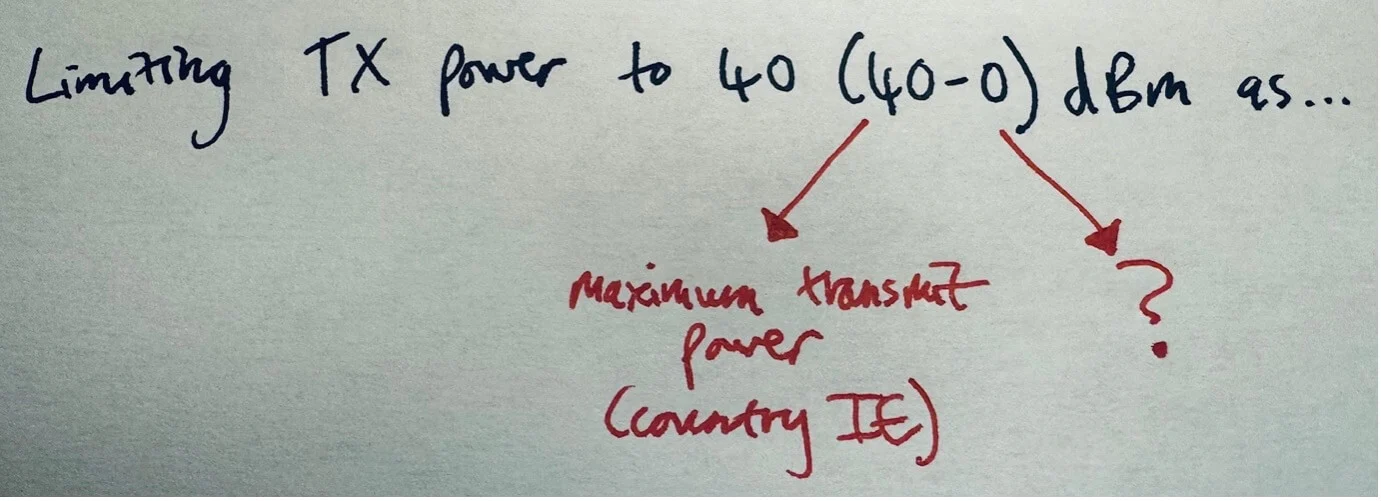 Limiting TX power to 40 (40-0) dBm as...
maximum transmit
power
(country IE)
?